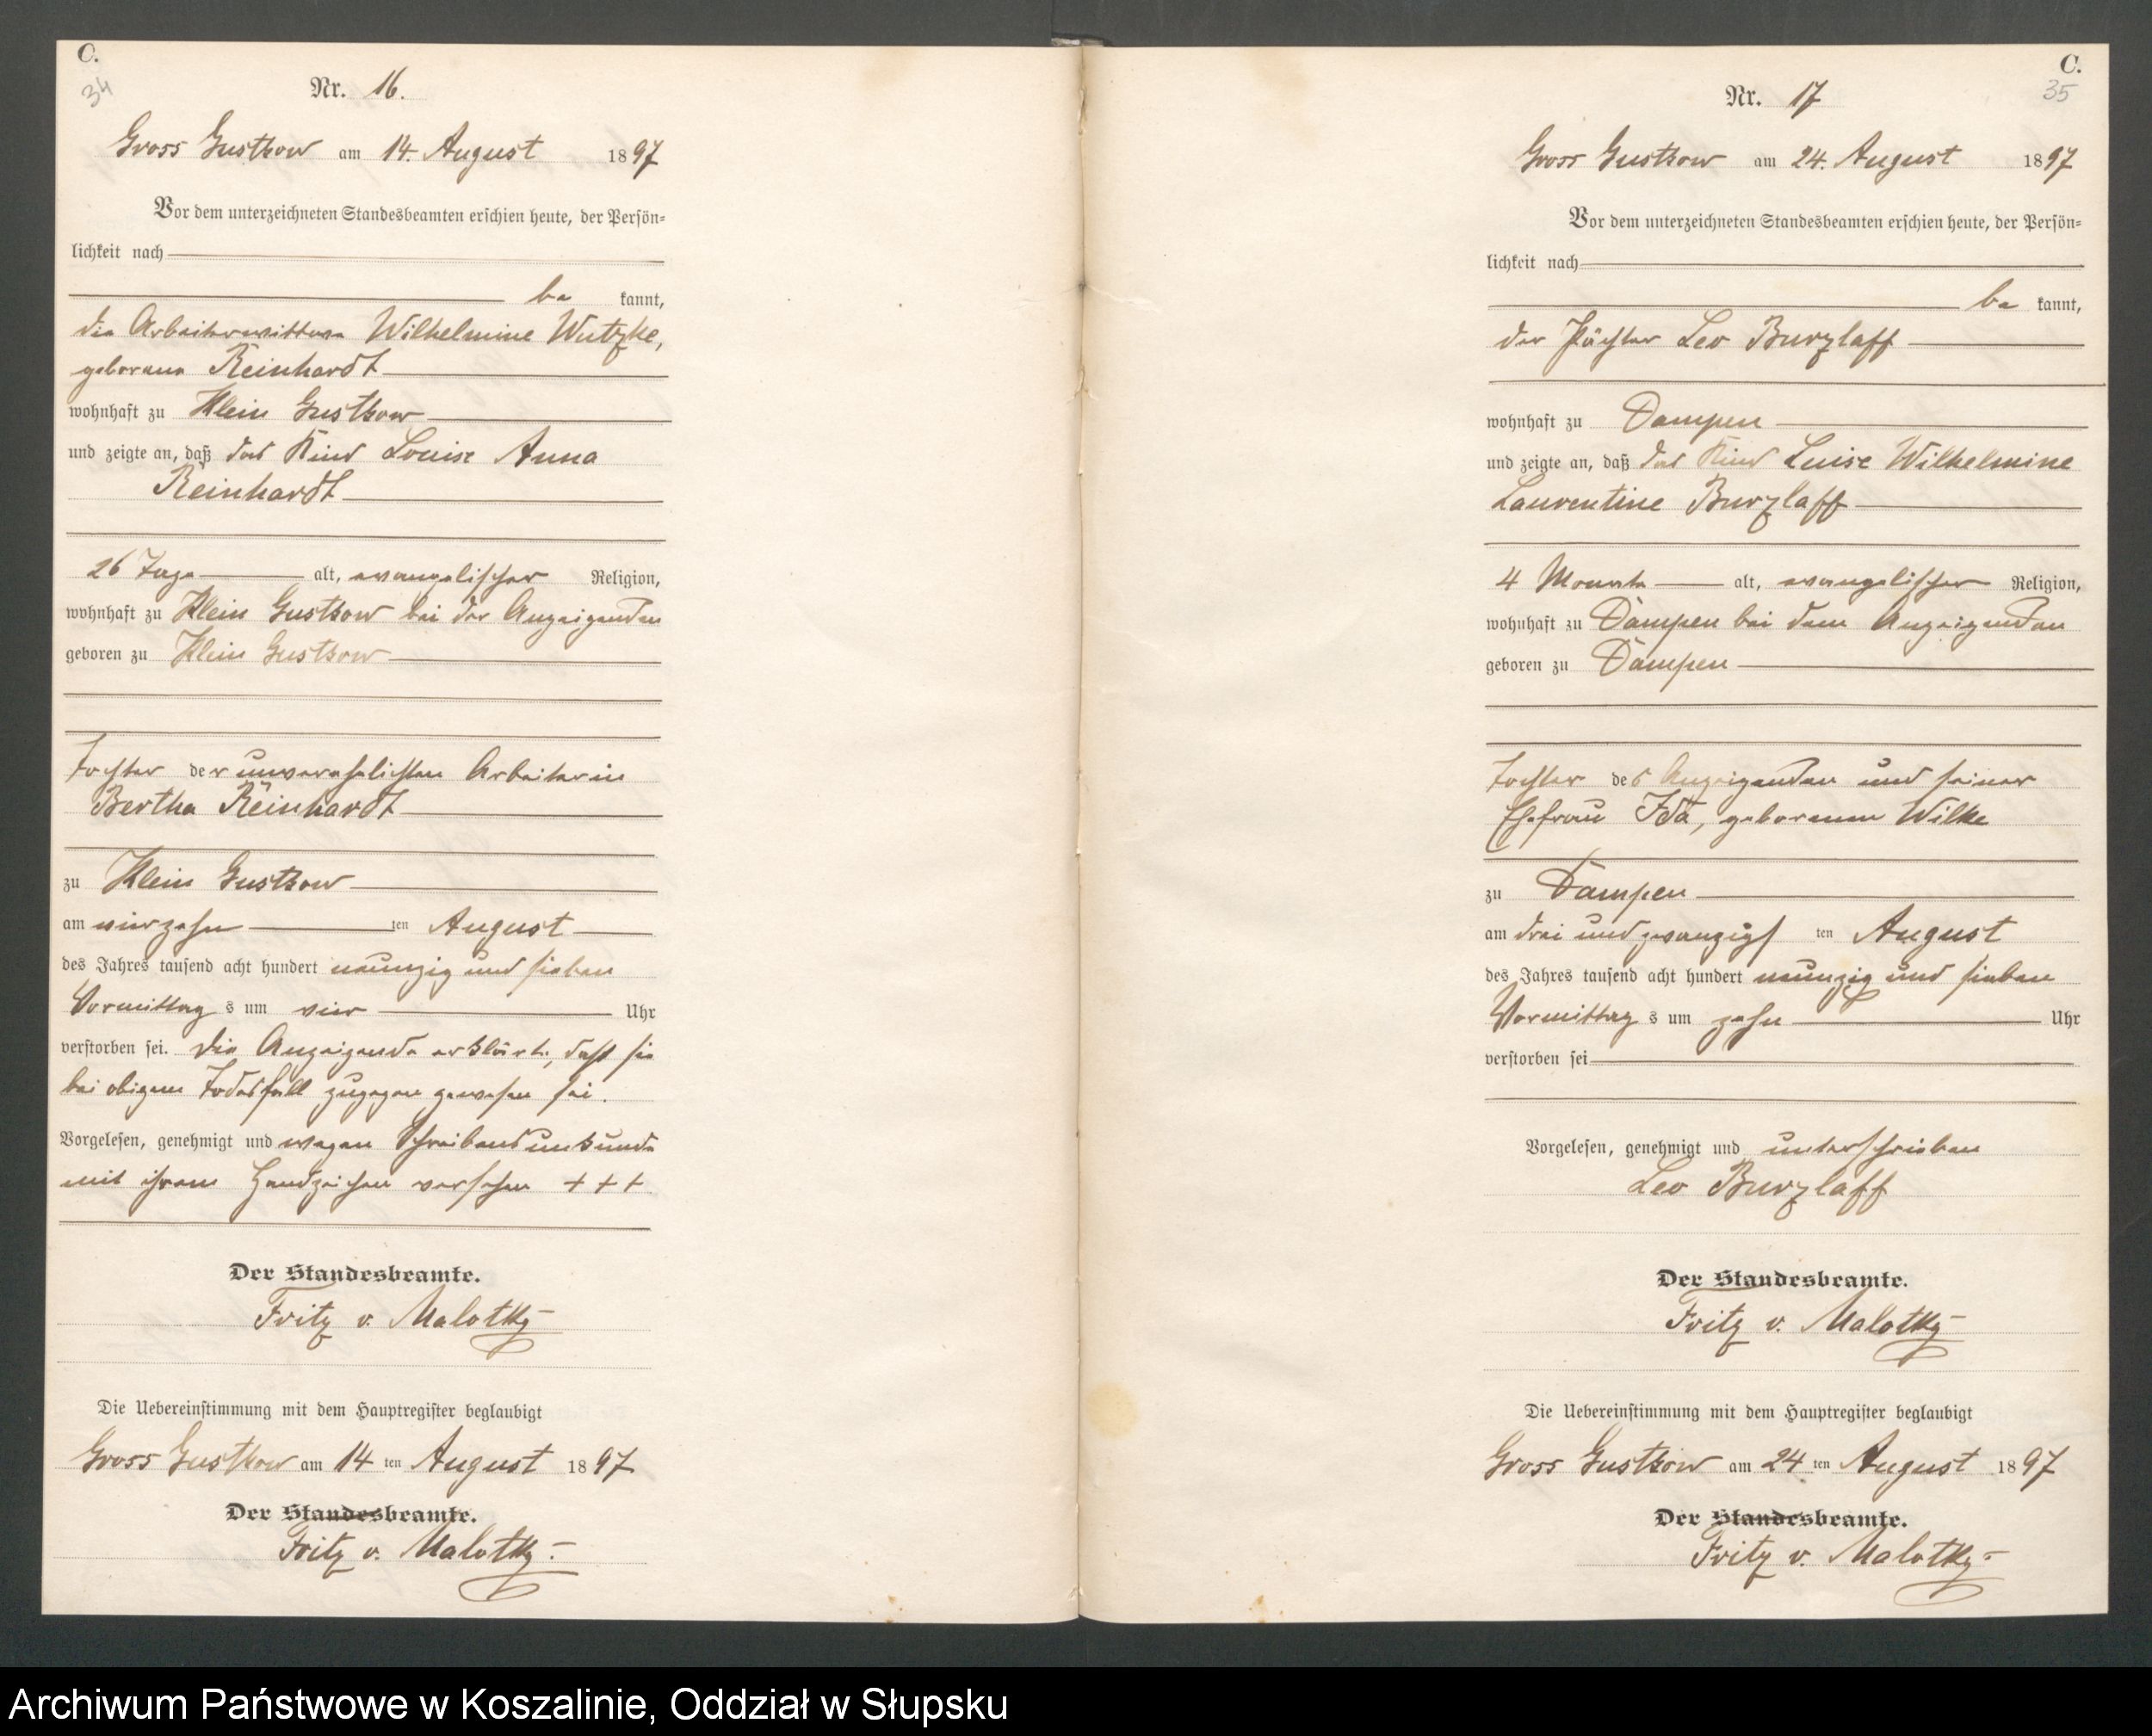 C.
34
Nr. 16.
Gross Gustkow am 14. August 1897
Vor dem unterzeichneten Standesbeamten erschien heute, der Persön-
lichkeit nach
be kannt,
die Arbeiterwittwe Wilhelmine Wutzke,
geborene Reinhardt
wohnhaft zu Klein Gustkow
und zeigte an, daß das Kind Louise Anna
Reinhardt
26 Tage alt, evangelischer Religion,
wohnhaft zu Klein Gustkow bei der Anzeigenden
geboren zu Klein Gustkow
Tochter der unverehelichten Arbeiterin
Bertha Reinhardt
zu Klein Gustkow
am vierzehn ten August
des Jahres tausend acht hundert neunzig und sieben
Vormittag s um vier Uhr
verstorben sei. Die Anzeigende erklärte, daß sie
bei obigem Todesfall zugegen gewesen sei.
Vorgelesen, genehmigt und wegen Schreibensunkunde
mit ihrem Handzeichen versehen + + +
Der Standesbeamte.
Fritz v. Malotky
Die Uebereinstimmung mit dem Hauptregister beglaubigt
Gross Gustkow am 14 ten August 1897
Der Standesbeamte.
Fritz v. Malotky
C.
35
Nr. 17
Gross Gustkow am 24. August 1897
Vor dem unterzeichneten Standesbeamten erschien heute, der Persön-
lichkeit nach
be kannt,
der Pächter Leo Burzlaff
wohnhaft zu Dampen
und zeigte an, daß das Kind Luise Wilhelmine
Laurentine Burzlaff
4 Monate alt, evangelischer Religion,
wohnhaft zu Dampen bei dem Anzeigenden
geboren zu Dampen
Tochter des Anzeigenden und seiner
Ehefrau Ida, geborenen Wilke
zu Dampen
am drei und zwanzigs ten August
des Jahres tausend acht hundert neunzig und sieben
Vormittag s um zehn Uhr
verstorben sei
Vorgelesen, genehmigt und unterschrieben
Leo Burzlaff
Der Standesbeamte.
Fritz v. Malotky
Die Uebereinstimmung mit dem Hauptregister beglaubigt
Gross Gustkow am 24 ten August 1897
Der Standesbeamte.
Fritz v. Malotky
Archiwum Państwowe w Koszalinie, Oddział w Słupsku